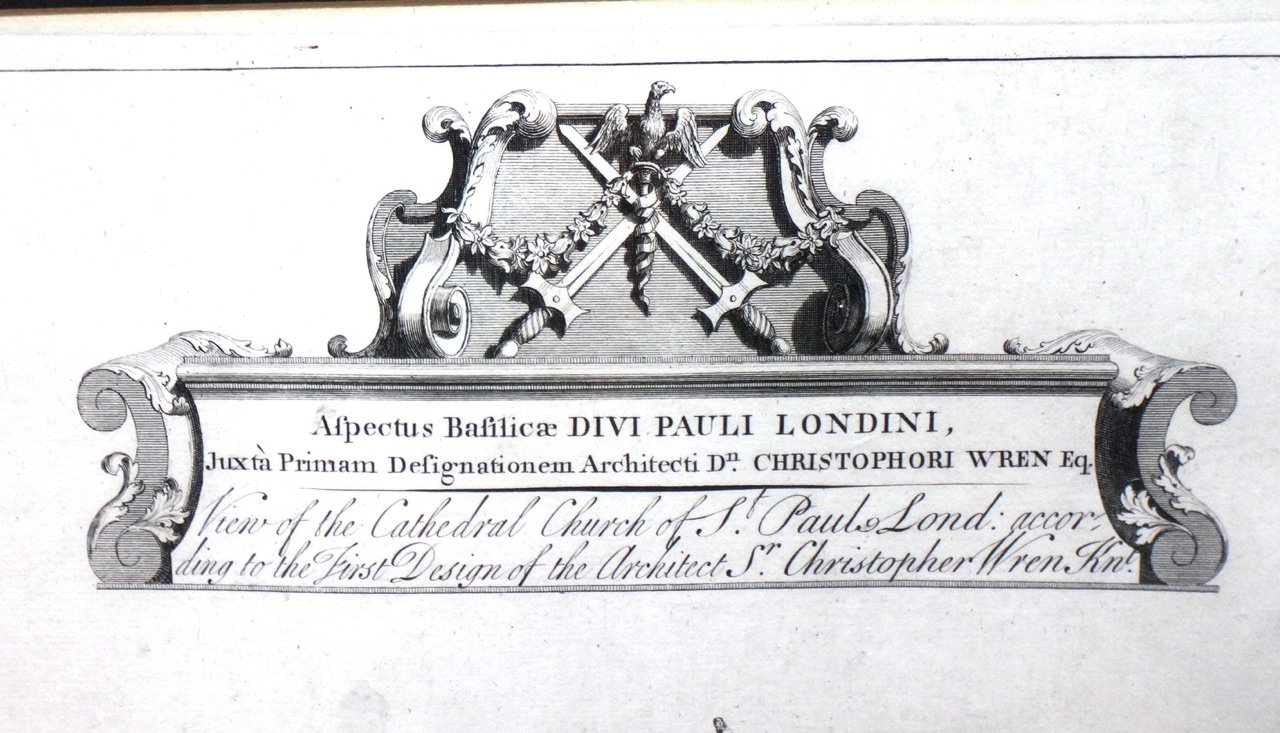 Aſpectus Baſilicæ DIVI PAULI LONDINI,
Juxtà Primam Deſignationem Architecti Dⁿ. CHRISTOPHORI WREN Eq.
View of the Cathedral Church of S.ᵗ Pauls Lond: accor-
ding to the First Design of the Architect Sʳ. Christopher Wren Knᵗ.